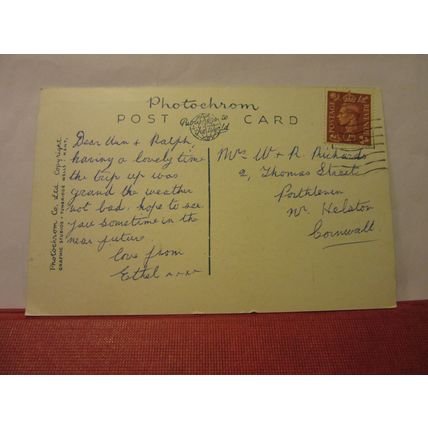 Photochrom
POST CARD
Publishers to the World
Photochrom Co. Ltd. Copyright.
GRAPHIC STUDIOS - TUNBRIDGE WELLS - KENT.
POSTAGE
REVENUE
Dear Ann & Ralph,
having a lovely time
the trip up was
grand the weather
not bad. hope to see
you sometime in the
near future.
love from
Ethel xxxx
Mrs W & R. Richards
2, Thomas Street
Porthleven
Nr. Helston
Cornwall.